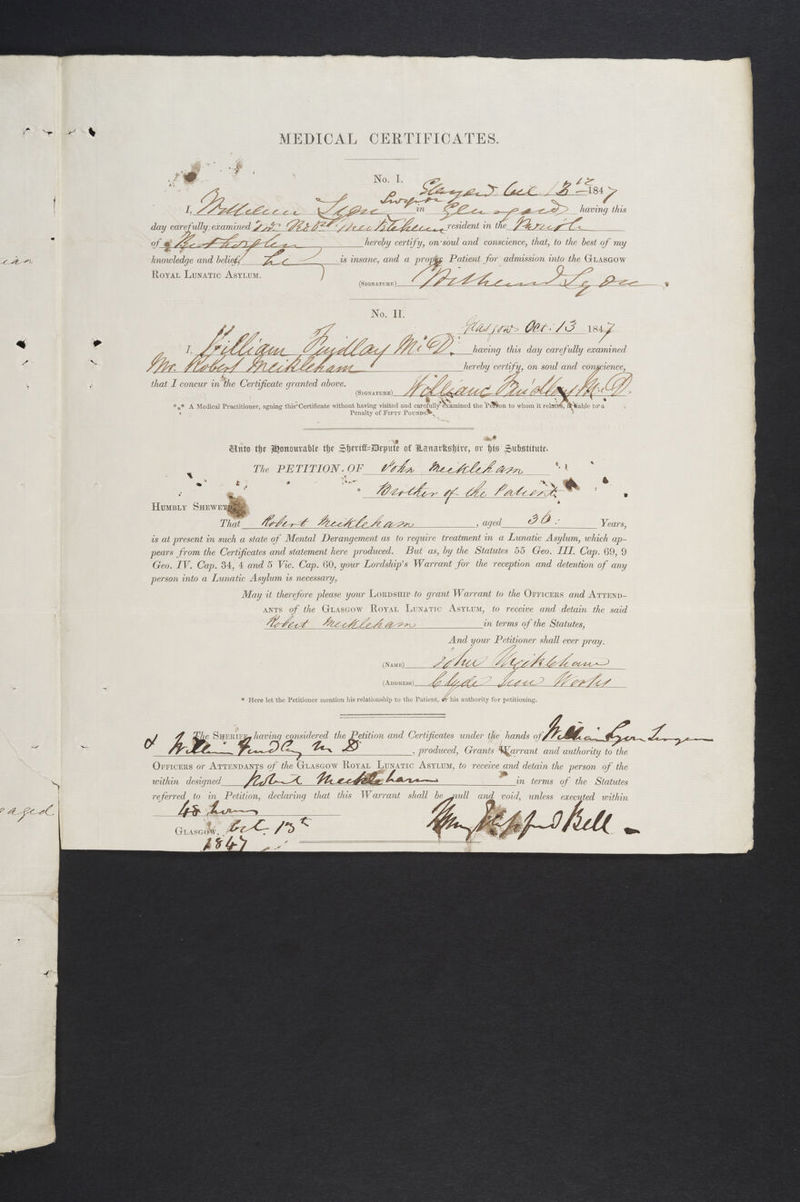 MEDICAL CERTIFICATES.
No. I.
Glasgow Oct 13th 1847
I, William Lyon Surgeon in Glasgow having this
day carefully examined Mr. Robt. Meikleham resident in the Parish
of Rutherglen hereby certify, on soul and conscience, that, to the best of my
knowledge and belief, he is insane, and a proper Patient for admission into the GLASGOW
ROYAL LUNATIC ASYLUM.
(SIGNATURE) William Lyon.
No. II.
Glasgow Oct. 13 1847
I, William Findlay M.D. having this day carefully examined
Mr. Robert Meikleham hereby certify, on soul and conscience,
that I concur in the Certificate granted above.
(SIGNATURE) William Findlay M.D.
*** A Medical Practitioner, signing this Certificate without having visited and carefully examined the Person to whom it relates, is liable to a
Penalty of FIFTY POUNDS.
Unto the Honourable the Sheriff-Depute of Lanarkshire, or his Substitute.
The PETITION OF John Meikleham
* Brother of the Patient.
HUMBLY SHEWETH,
That Robert Meikleham, aged 36: Years,
is at present in such a state of Mental Derangement as to require treatment in a Lunatic Asylum, which ap-
pears from the Certificates and statement here produced. But as, by the Statutes 55 Geo. III. Cap. 69, 9
Geo. IV. Cap. 34, 4 and 5 Vic. Cap. 60, your Lordship's Warrant for the reception and detention of any
person into a Lunatic Asylum is necessary,
May it therefore please your LORDSHIP to grant Warrant to the OFFICERS and ATTEND-
ANTS of the GLASGOW ROYAL LUNATIC ASYLUM, to receive and detain the said
Robert Meikleham in terms of the Statutes,
And your Petitioner shall ever pray.
(NAME) John Meikleham
(ADDRESS) Clyde Iron Works
* Here let the Petitioner mention his relationship to the Patient, or his authority for petitioning.
The SHERIFF, having considered the Petition and Certificates under the hands of William Lyon Surgeon
& William Findlay M D, produced, Grants Warrant and authority to the
OFFICERS or ATTENDANTS of the GLASGOW ROYAL LUNATIC ASYLUM, to receive and detain the person of the
within designed Robert Meikleham in terms of the Statutes
referred to in Petition, declaring that this Warrant shall be null and void, unless executed within
48 hours
GLASGOW, Oct. 13th
1847
Henry Glassford Bell
aged